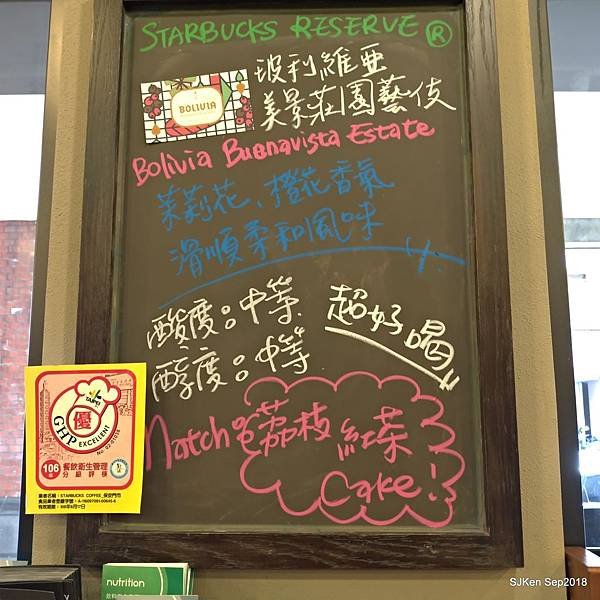 STARBUCKS RESERVE ®
BOLIVIA
玻利維亞
美景莊園藝伎
Bolivia Buenavista Estate
茉莉花、橙花香氣
滑順柔和風味
酸度：中等
醇度：中等
超好喝!!
match 荔枝紅茶
Cake!
TAIPEI
優
GHP EXCELLENT
106
餐飲衛生管理
分級評核
業者名稱：STARBUCKS COFFEE_保安門市
nutrition
SJKen Sep2018